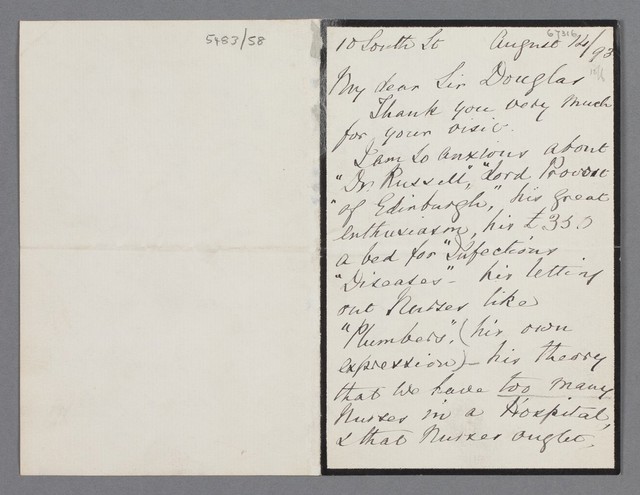 5483/58
67316
10 South St August 14/93
My dear Sir Douglas
Thank you very much
for your visit.
I am so anxious about
"Dr. Russell", "Lord Provost
"of Edinburgh," his great
enthusiasm, his £350
a bed for "Infectious
"Diseases" - his letting
out Nurses like
"Plumbers", (his own
expression) - his theory
that we have too many
Nurses in a Hospital,
& that Nurses ought,